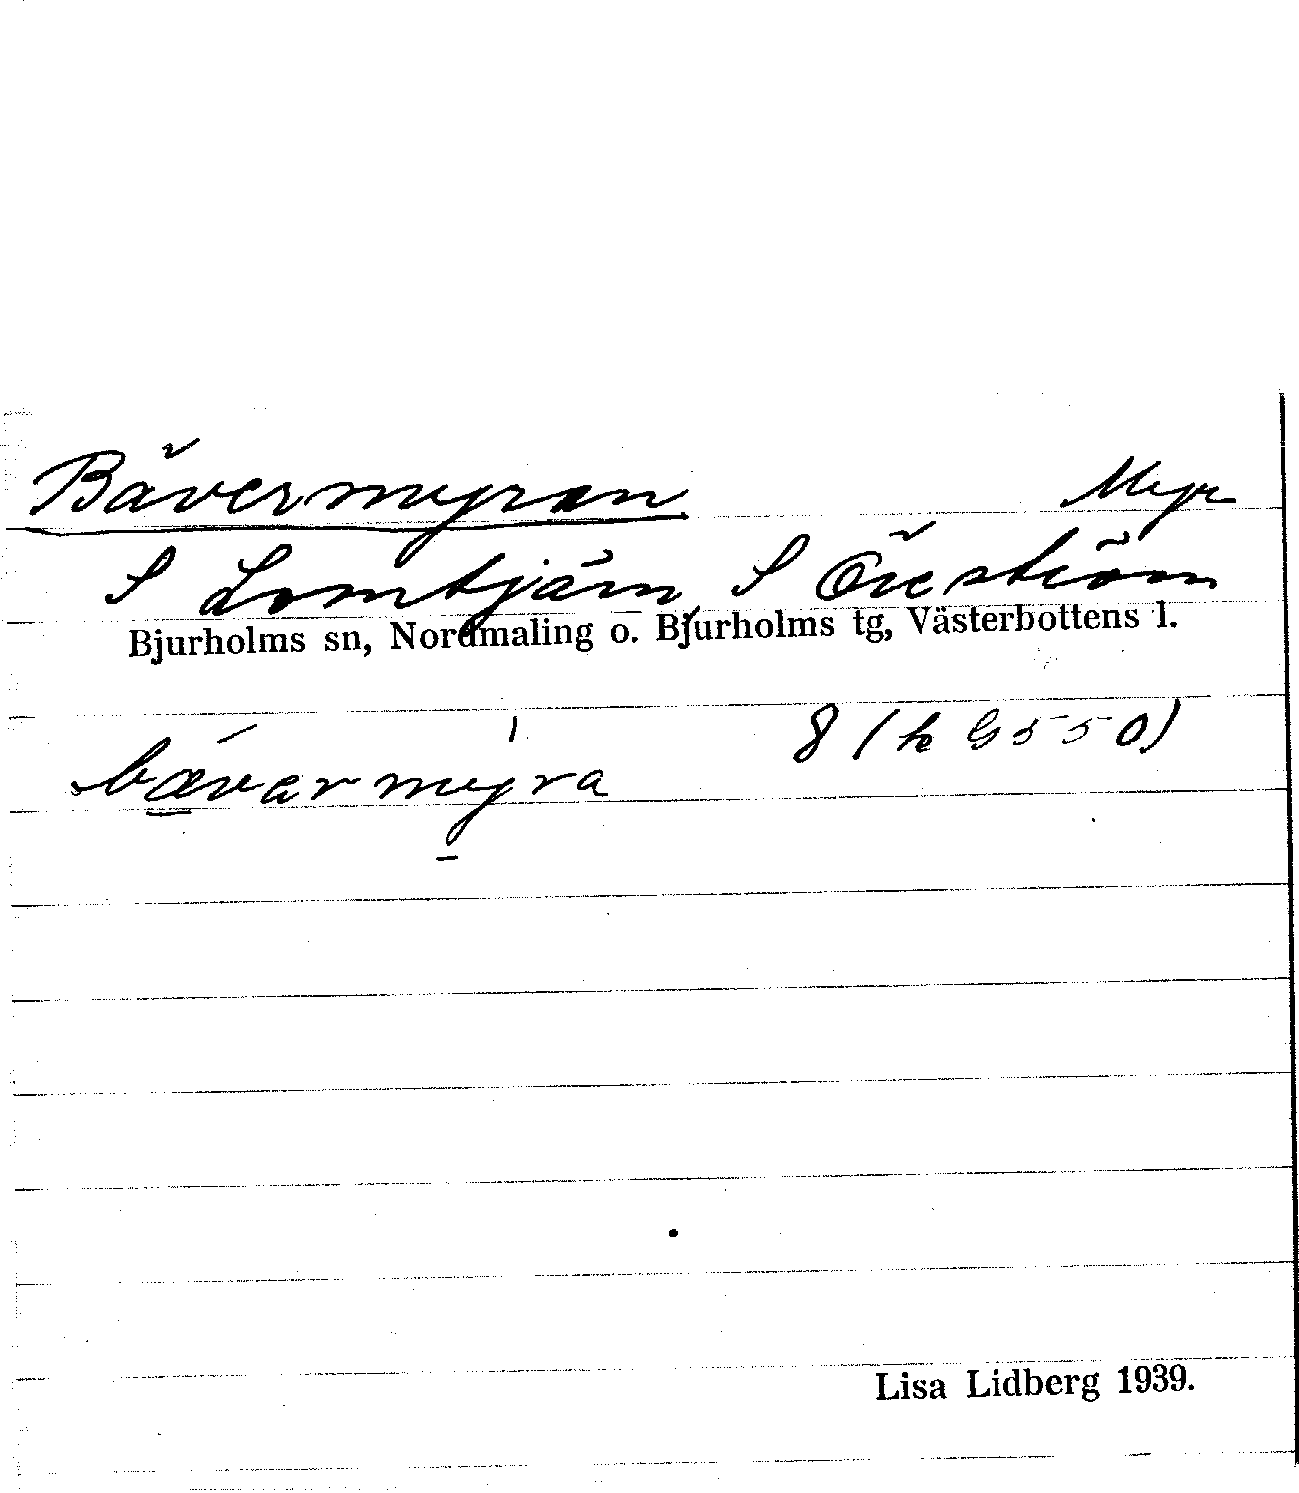 Bävermyran Myr
S Lomtjärn, S Öreström
Bjurholms sn, Nordmaling o. Bjurholms tg, Västerbottens l.
bævarmyra 8 (k G550)
Lisa Lidberg 1939.